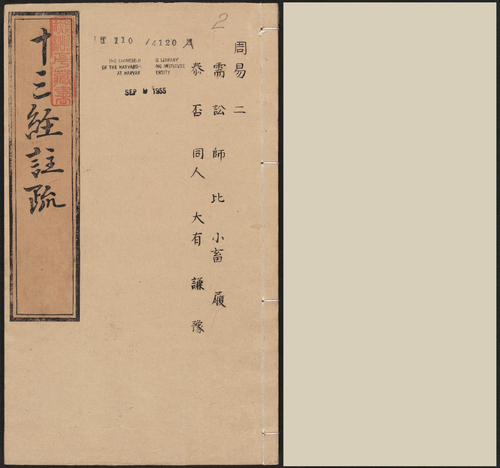 十三經註疏
周易二
需 訟 師 比 小畜 履
泰 否 同人 大有 謙 豫
2
110 /4120
LIBRARY
OF THE HARVARD-
AT HARVARD
SEP 9 1955